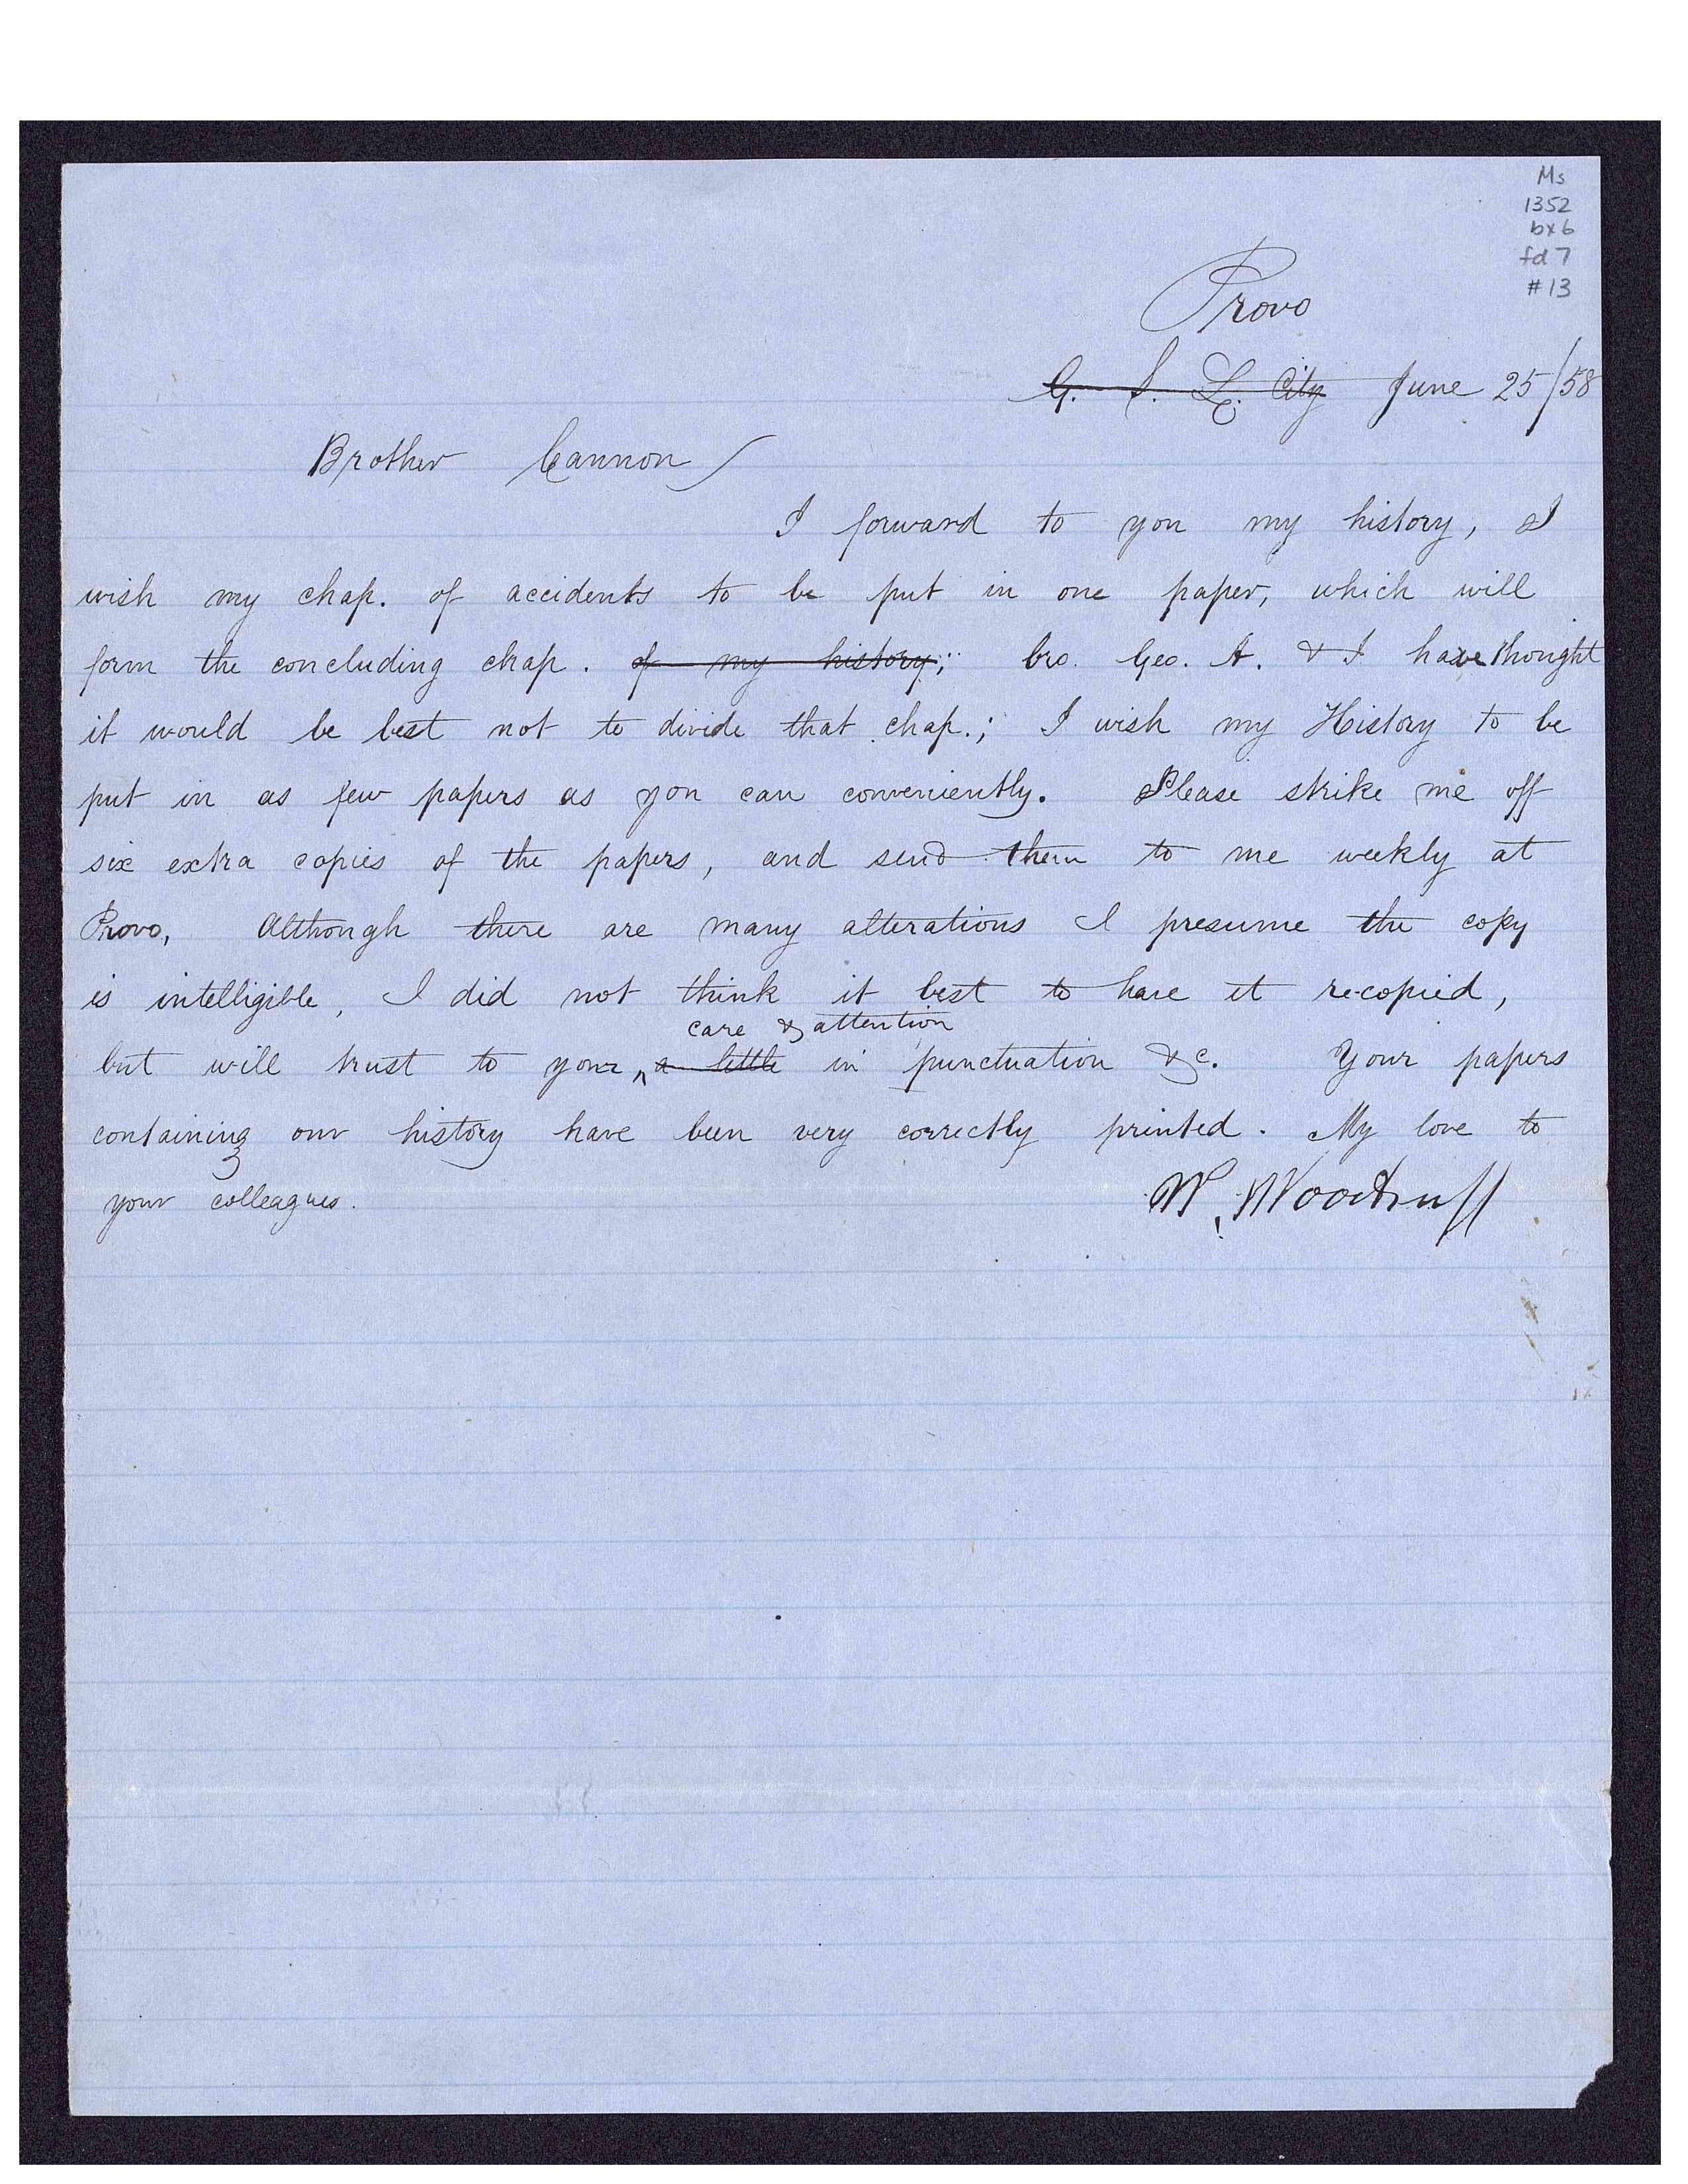 Ms
1352
bx6
fd 7
#13
Provo
G. S. L. City June 25/58
Brother Cannon
I forward to you my history, I
wish my chap. of accidents to be put in one paper, which will
form the concluding chap. of my history; bro. Geo. A. & I have thought
it would be best not to divide that chap.; I wish my History to be
put in as few papers as you can conveniently. Please strike me off
six extra copies of the papers, and send them to me weekly at
Provo, Although there are many alterations I presume the copy
is intelligible, I did not think it best to have it re-copied,
care & attention
but will trust to your ^ a little in punctuation &c. Your papers
containing our history have been very correctly printed. My love to
your colleagues.
W. Woodruff